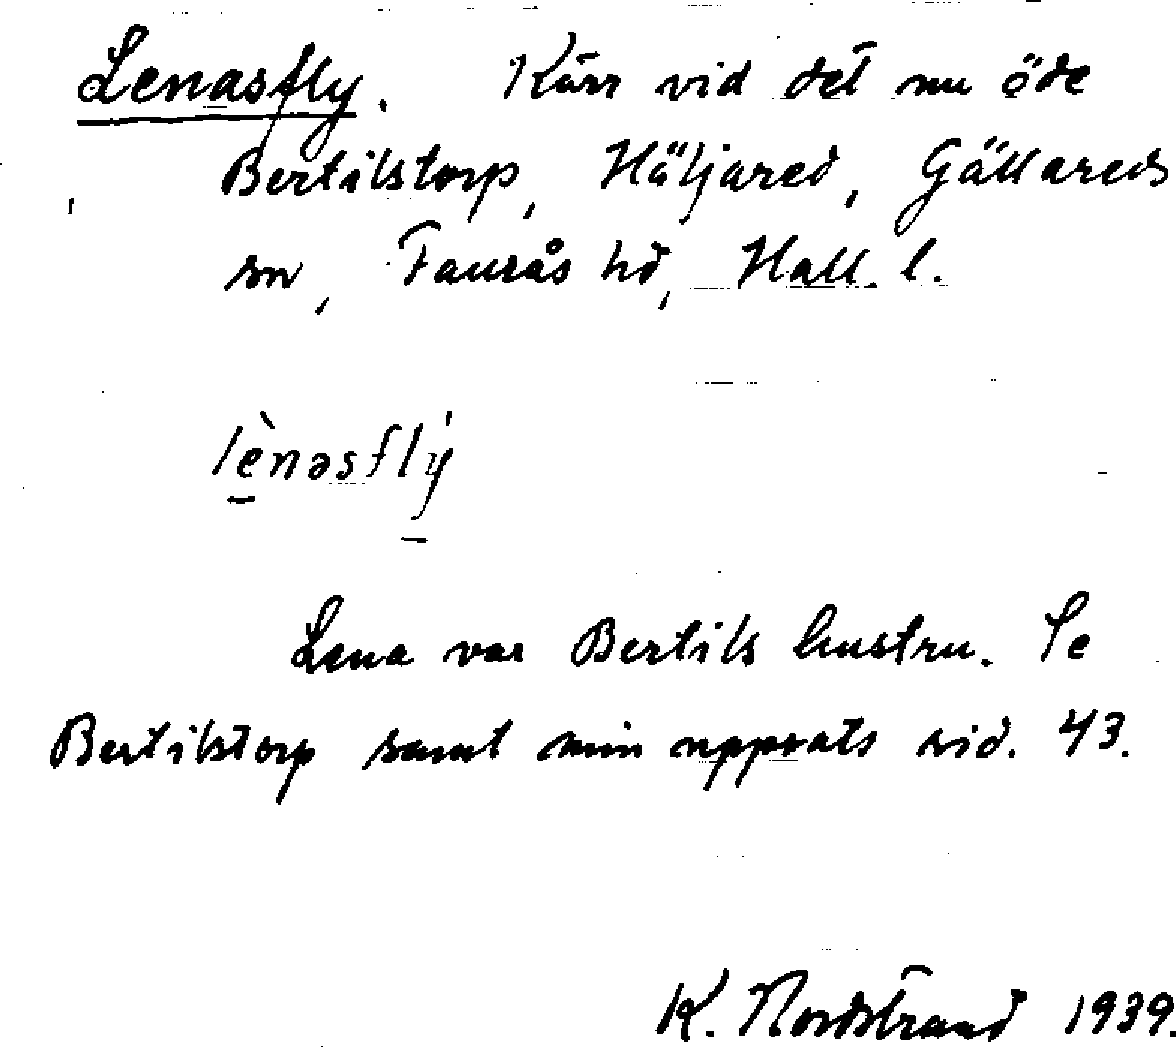 Lenasfly. Kärr vid det nu öde
Bertilstorp, Häljared, Gällareds
sn, Faurås hd, Hall. l.
lènəsflý
Lena var Bertils hustru. Se
Bertilstorp samt min uppsats sid. 43.
K. Nordstrand 1939.